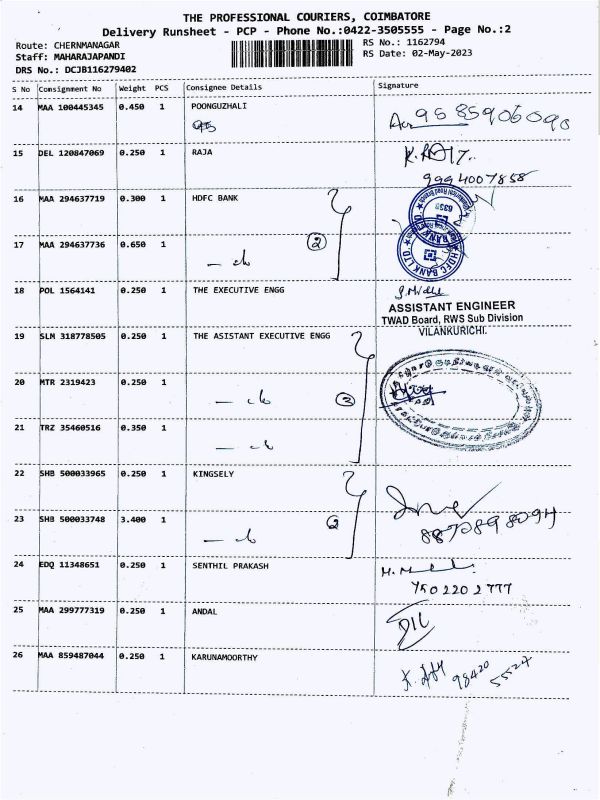 THE PROFESSIONAL COURIERS, COIMBATORE
Delivery Runsheet - PCP - Phone No.:0422-3505555 - Page No.:2
Route: CHERNMANAGAR RS No.: 1162794
Staff: MAHARAJAPANDI RS Date: 02-May-2023
DRS No.: DCJB116279402
S No Consignment No Weight PCS Consignee Details Signature
14 MAA 100445345 0.450 1 POONGUZHALI
9585906090
15 DEL 120847069 0.250 1 RAJA
9994007858
16 MAA 294637719 0.300 1 HDFC BANK
17 MAA 294637736 0.650 1
2
HDFC BANK LTD
18 POL 1564141 0.250 1 THE EXECUTIVE ENGG
ASSISTANT ENGINEER
TWAD Board, RWS Sub Division
VILANKURICHI.
19 SLM 318778505 0.250 1 THE ASISTANT EXECUTIVE ENGG
20 MTR 2319423 0.250 1
3
21 TRZ 35460516 0.350 1
22 SHB 500033965 0.250 1 KINGSELY
23 SHB 500033748 3.400 1
2
8870898094
24 EDQ 11348651 0.250 1 SENTHIL PRAKASH
7502202777
25 MAA 299777319 0.250 1 ANDAL
26 MAA 859487044 0.250 1 KARUNAMOORTHY
98420
55524